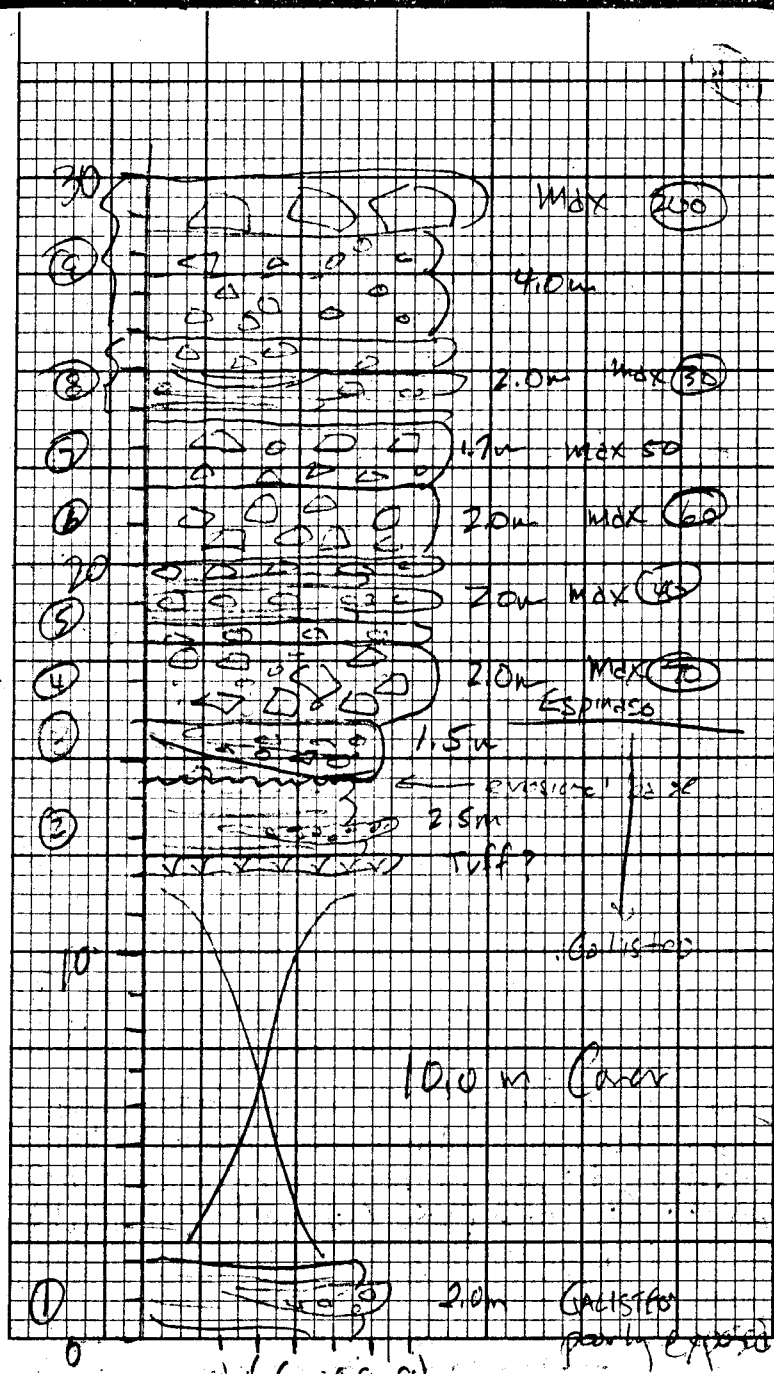 30
Max 200
9
4.0m
8
2.0m max 30
7
1.7m max 50
6
2.0m max 60
20
5
2.0m max 40
4
2.0m Max 70
Espinaso
3
1.5m
erosional base
2
2.5m
Tuff?
10
Galisteo
10.0 m Cover
1
2.0m GALISTEO
poorly exposed
0